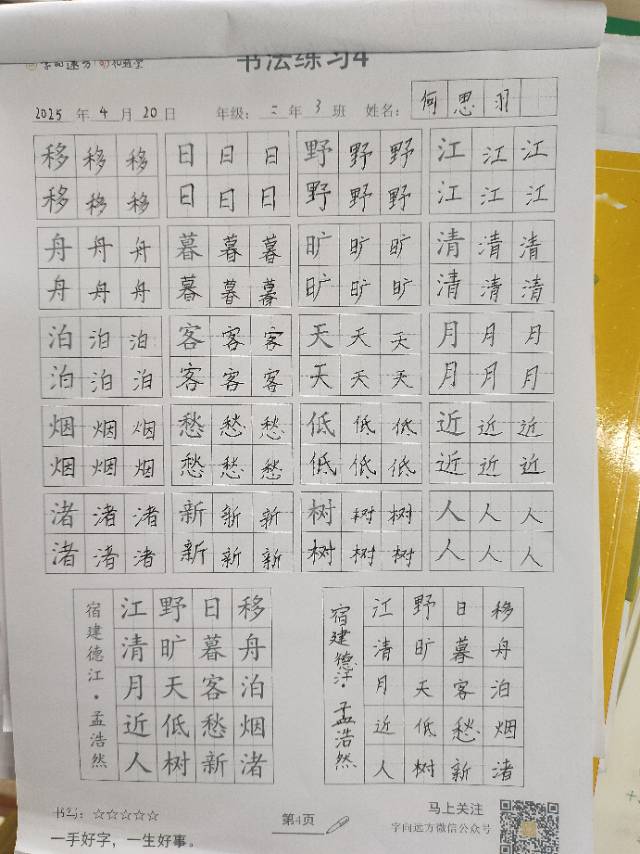 字向速方
书法练习4
2025 年 4 月 20 日 年级: 二 年 3 班 姓名: 何思羽
移移移 日日日 野野野 江江江
移移移 日日日 野野野 江江江
舟舟舟 暮暮暮 旷旷旷 清清清
舟舟舟 暮暮暮 旷旷旷 清清清
泊泊泊 客客客 天天天 月月月
泊泊泊 客客客 天天天 月月月
烟烟烟 愁愁愁 低低低 近近近
烟烟烟 愁愁愁 低低低 近近近
渚渚渚 新新新 树树树 人人人
渚渚渚 新新新 树树树 人人人
移舟泊烟渚
日暮客愁新
野旷天低树
江清月近人
宿建德江·孟浩然
移舟泊烟渚
日暮客愁新
野旷天低树
江清月近人
宿建德江·孟浩然
☆☆☆☆☆
一手好字，一生好事。
第4页
马上关注
字向远方微信公众号